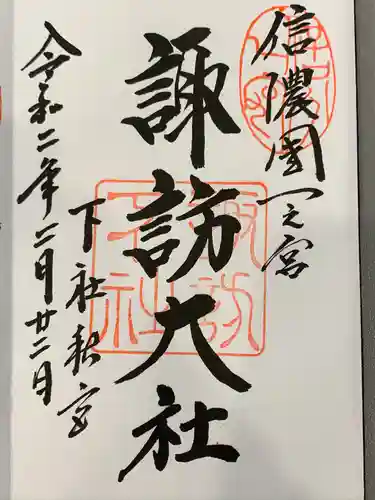 信濃國一之宮
諏訪大社
下社秋宮
令和二年二月廿二日
諏訪大社